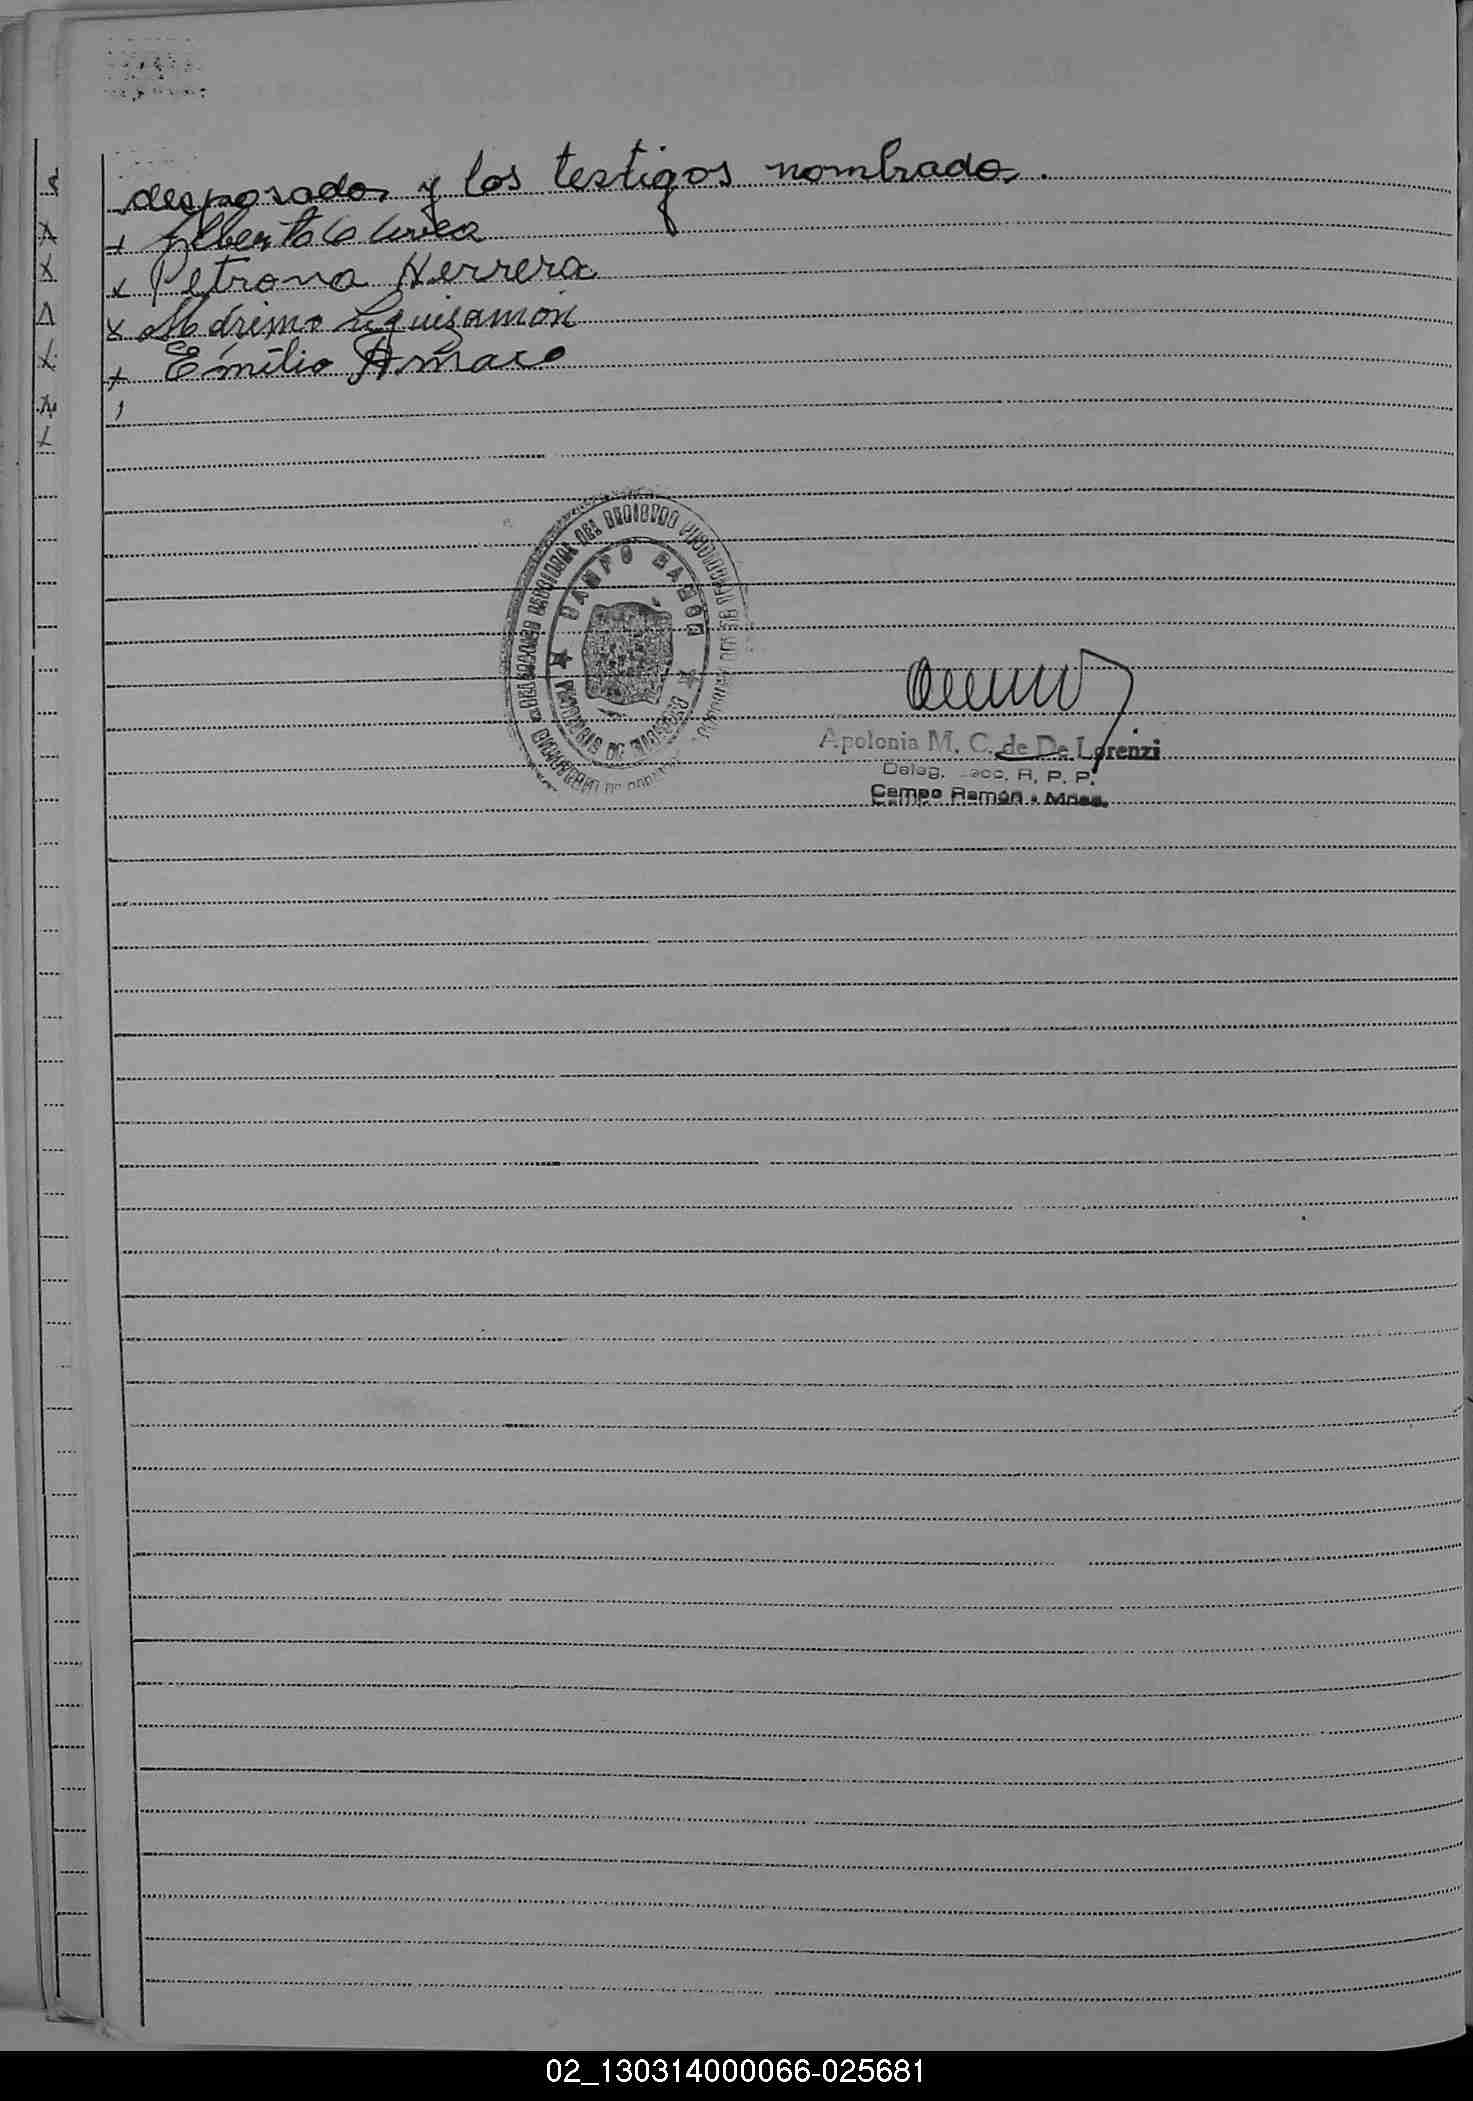 desposados y los testigos nombrados.
x Petrona Herrera
x Máximo Leguizamón
x Emilio Amaro
CAMPO RAMON
PROVINCIA DE MISIONES
Apolonia M. C. de De Lorenzi
Deleg. Secc. R. P. P.
Campo Ramón - Mnes.
02_130314000066-025681